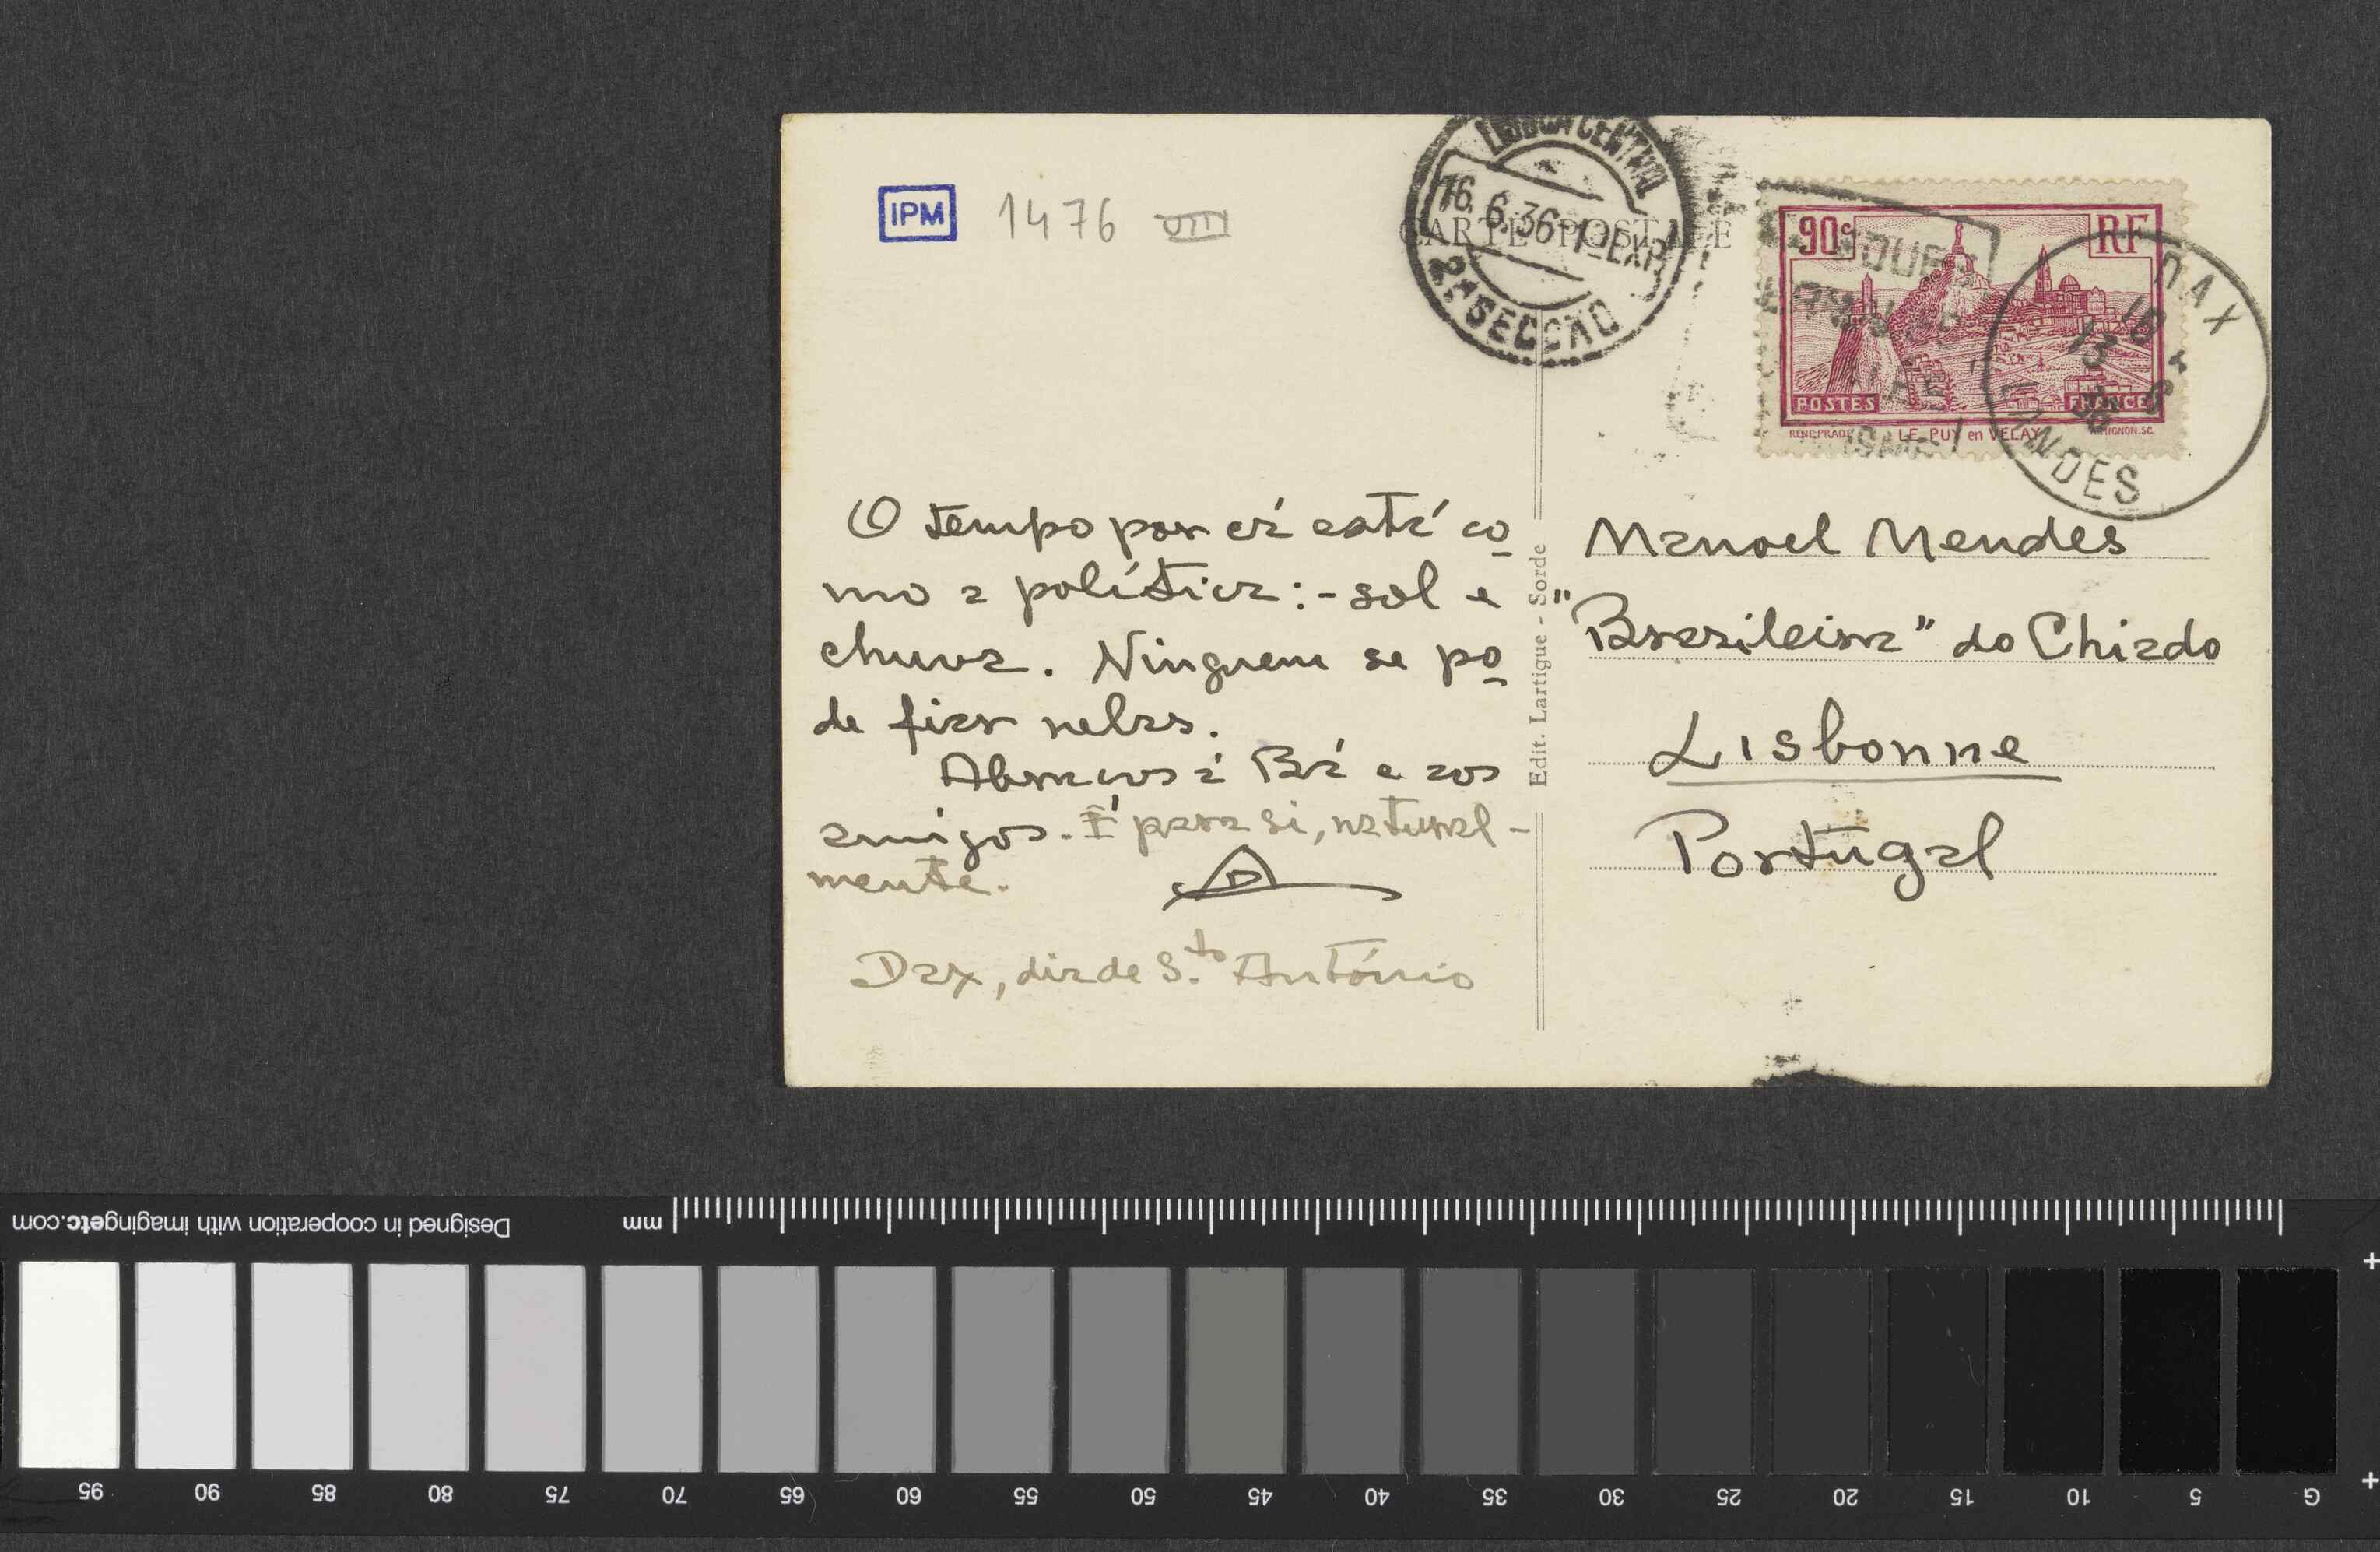 IPM 1476 VIII
CARTE POSTALE
LISBOA CENTRAL
16.6.36-1ªEXP.
2ª SECÇÃO
90c RF
POSTES FRANCE
LE PUY en VELAY
DAX
LANDES
O tempo por cá está co
mo a política:- sol e
chuva. Ninguem se po
de fiar nelas.
Abraços á Bá e aos
amigos. E para si, natural-
mente.
Dax, dia de S.to António
Edit. Lartigue - Sorde
Manoel Mendes
"Brasileira" do Chiado
Lisbonne
Portugal
Designed in cooperation with imagingetc.com
mm
95 90 85 80 75 70 65 60 55 50 45 40 35 30 25 20 15 10 5 G